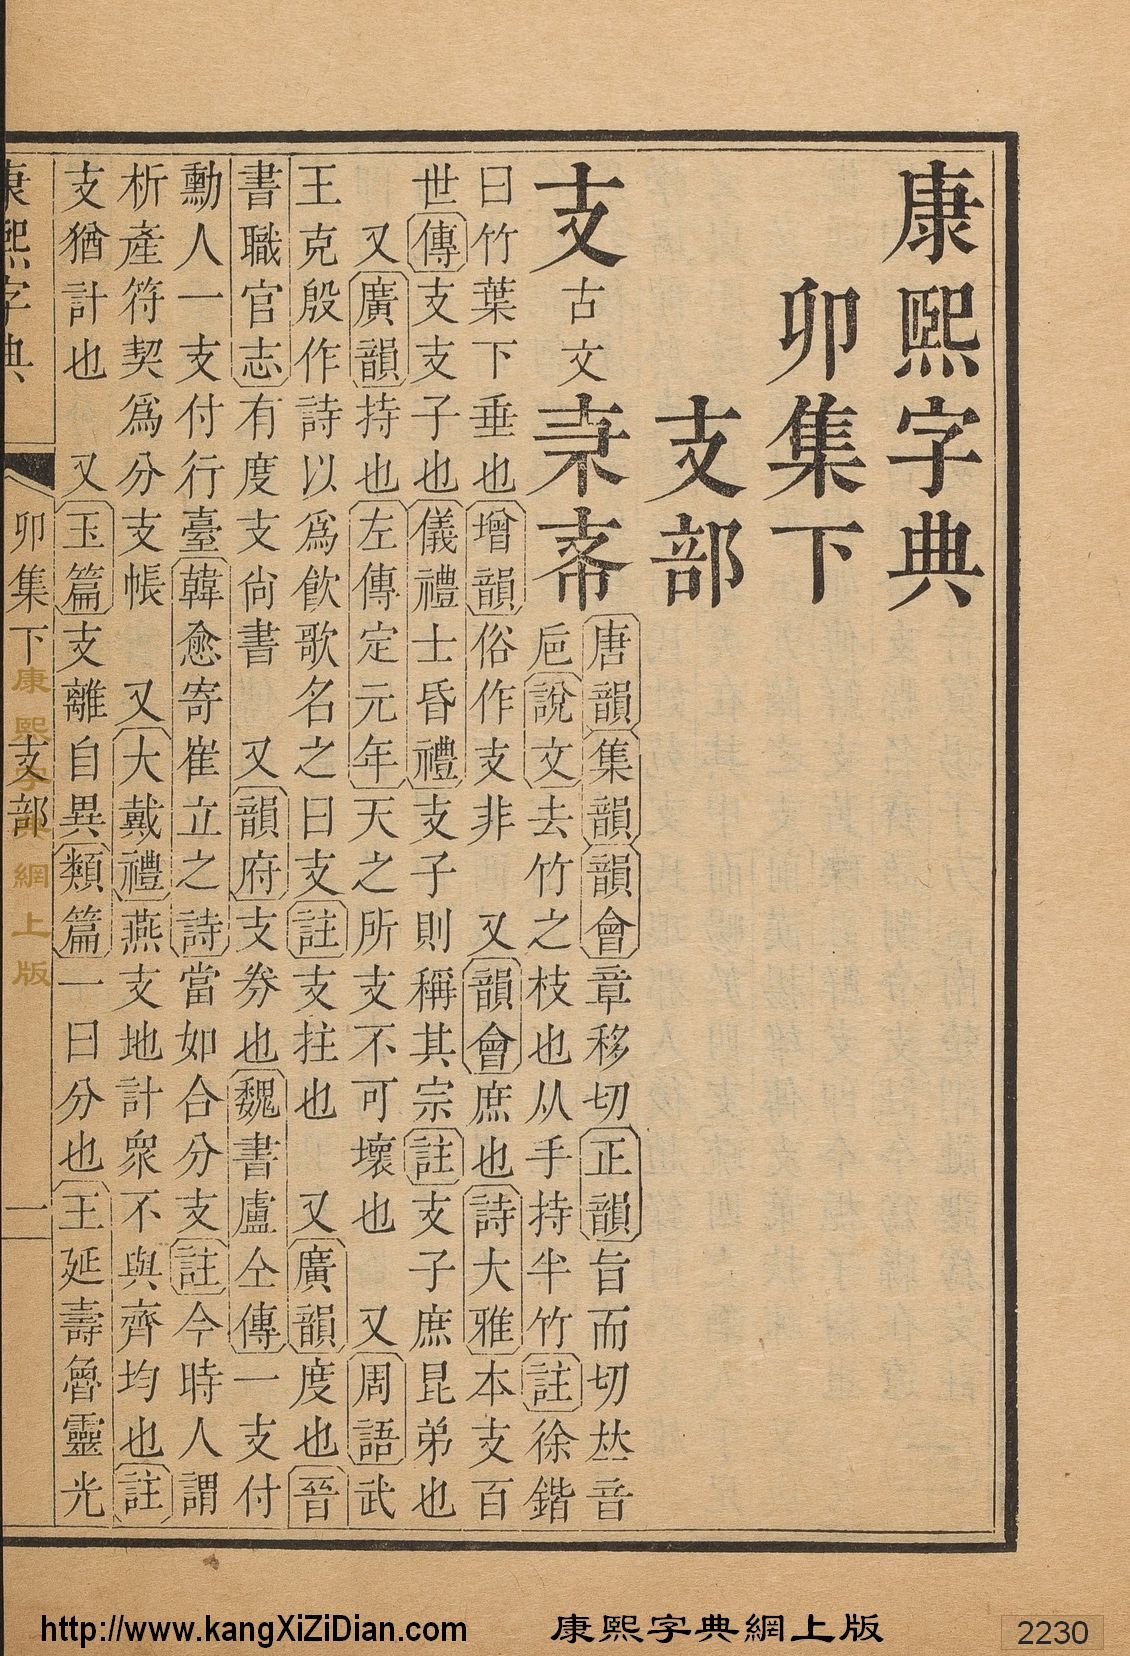 康熙字典
卯集下
支部
支古文𠦙𢺶
唐韻集韻韻會章移切正韻旨而切𠀤音
巵說文去竹之枝也从手持半竹註徐鍇
曰竹葉下垂也增韻俗作支非　又韻會庶也詩大雅本支百
世傳支支子也儀禮士昏禮支子則稱其宗註支子庶昆弟也
又廣韻持也左傳定元年天之所支不可壞也　又周語武
王克殷作詩以爲飫歌名之曰支註支拄也　又廣韻度也晉
書職官志有度支尙書　又韻府支券也魏書盧仝傳一支付
勳人一支付行臺韓愈寄崔立之詩當如合分支註今時人謂
析產符契爲分支帳　又大戴禮燕支地計衆不與齊均也註
支猶計也　又玉篇支離自異類篇一曰分也王延壽魯靈光
康熙字典　卯集下　支部　一
康熙字典網上版
http://www.kangXiZiDian.com 康熙字典網上版 2230